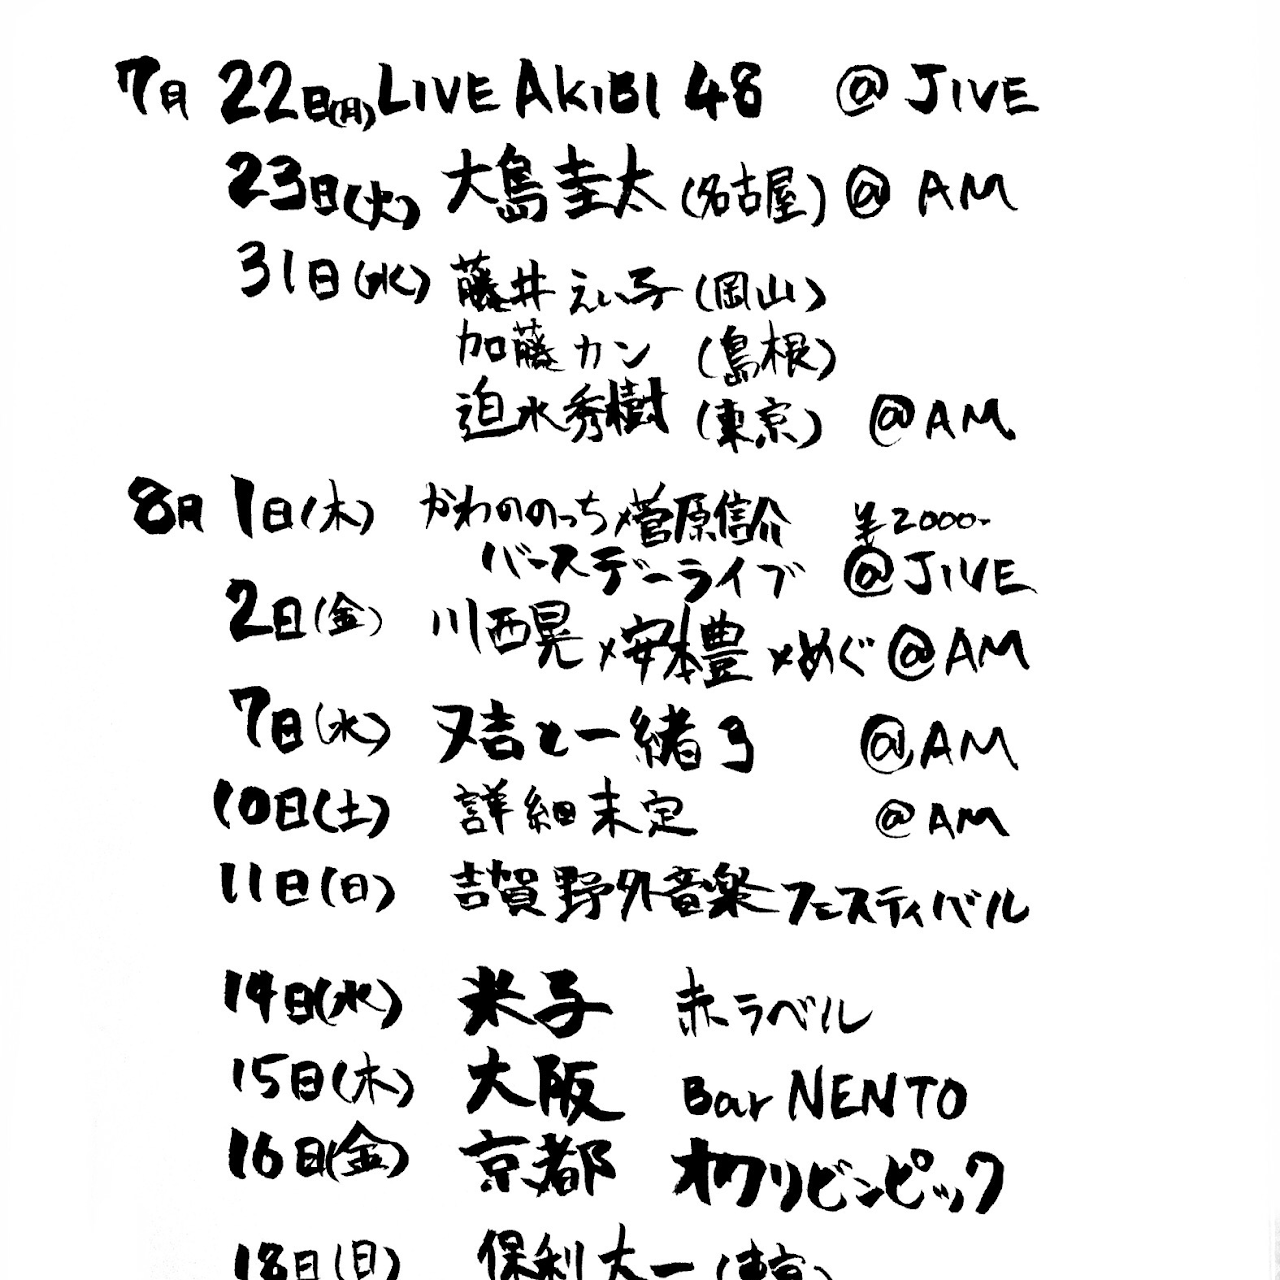 7月 22日(月) LIVE AKIBI 48 @ JIVE
23日(火) 大島圭太(名古屋) @ AM
31日(水) 藤井えい子(岡山)
加藤カン (島根)
迫水秀樹 (東京) @AM
8月 1日(木) かわののっち×菅原信介 ¥2000-
バースデーライブ @JIVE
2日(金) 川西晃×安本豊×めぐ @AM
7日(水) 又吉と一緒3 @AM
10日(土) 詳細未定 @AM
11日(日) 吉賀野外音楽フェスティバル
14日(水) 米子 赤ラベル
15日(木) 大阪 Bar NENTO
16日(金) 京都 オクリビンピック
18日(日) 保利太一(東京)